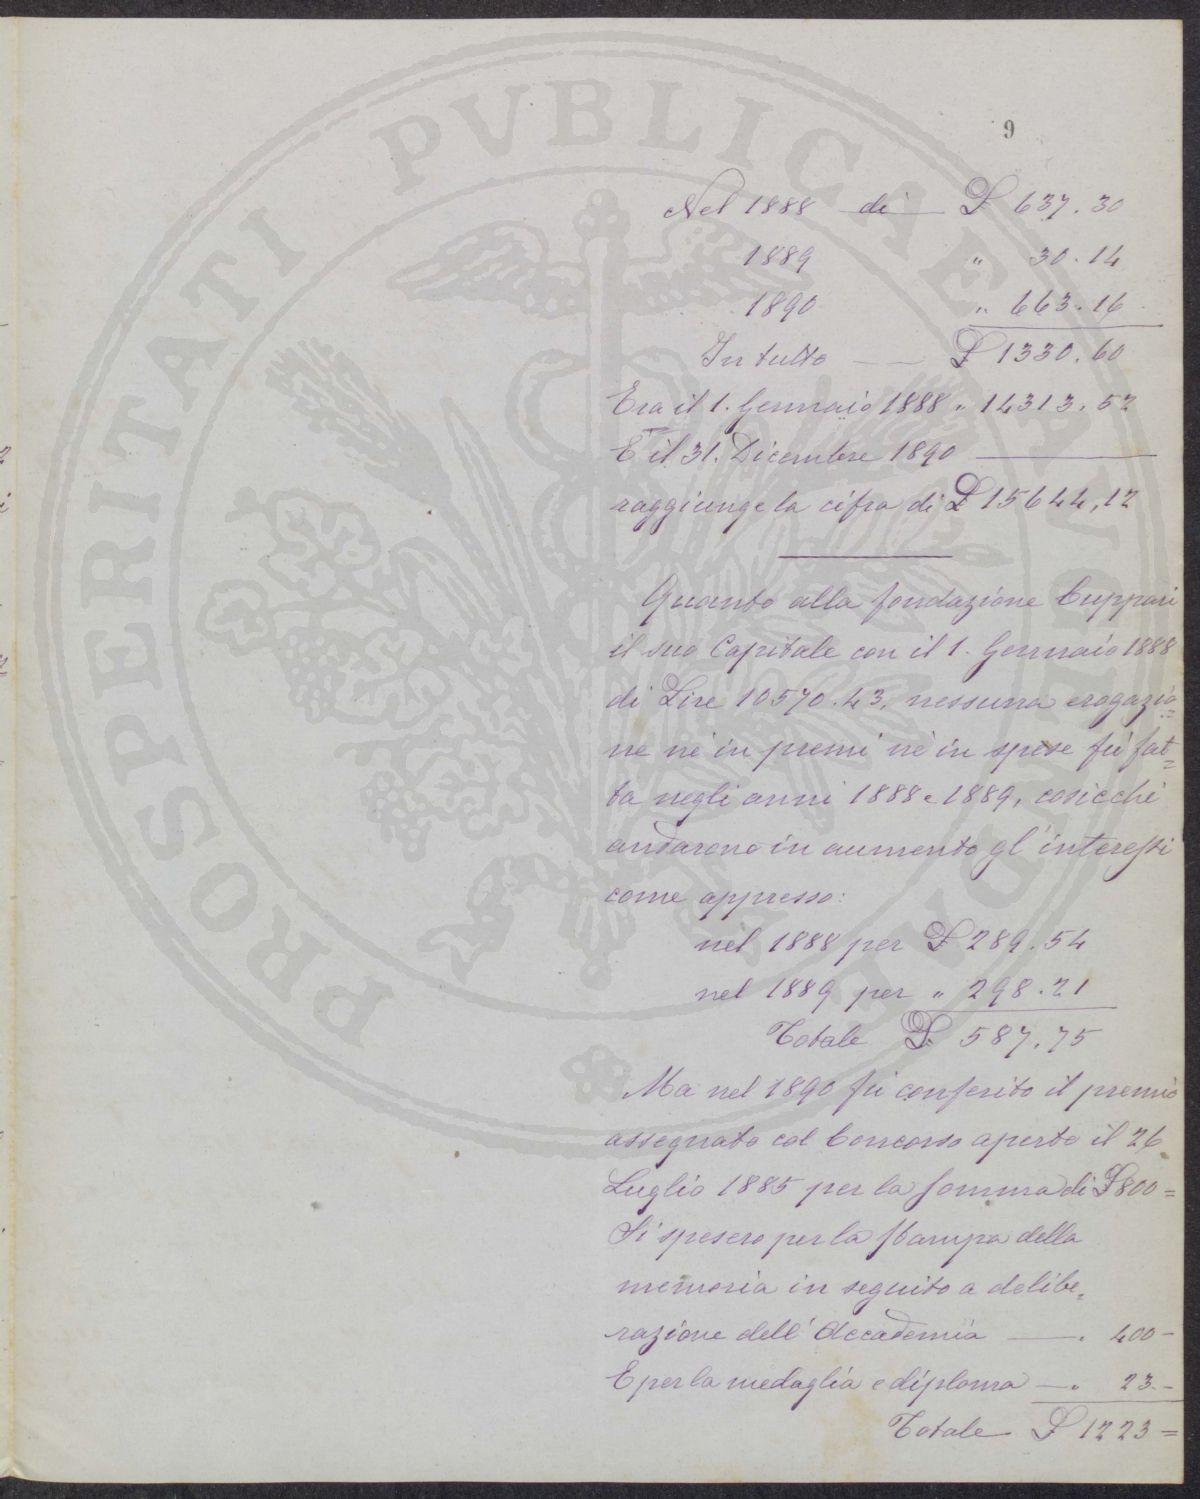 9
Nel 1888 di £ 637.30
1889 " 30.14
1890 " 663.16
In tutto — £ 1330.60
Era il 1. Gennaio 1888 " 14313.52
E il 31. Dicembre 1890 —
raggiunge la cifra di £ 15644,12
Quanto alla fondazione Cuppari
il suo Capitale con il 1. Gennaio 1888
di Lire 10570.43, nessuna erogazio=
ne nè in premi nè in spese fù fat=
ta negli anni 1888 e 1889, cosicchè
andarono in aumento gl'interessi
come appresso:
nel 1888 per £ 289.54
nel 1889 per " 298.21
Totale £ 587.75
Ma nel 1890 fù conferito il premio
assegnato col Concorso aperto il 26
Luglio 1885 per la somma di £ 800=
Si spesero per la stampa della
memoria in seguito a delibe=
razione dell'Accademia — " 400-
E per la medaglia e diploma — " 23.-
Totale £ 1223=
PROSPERITATI PVBLICAE AVGENDAE